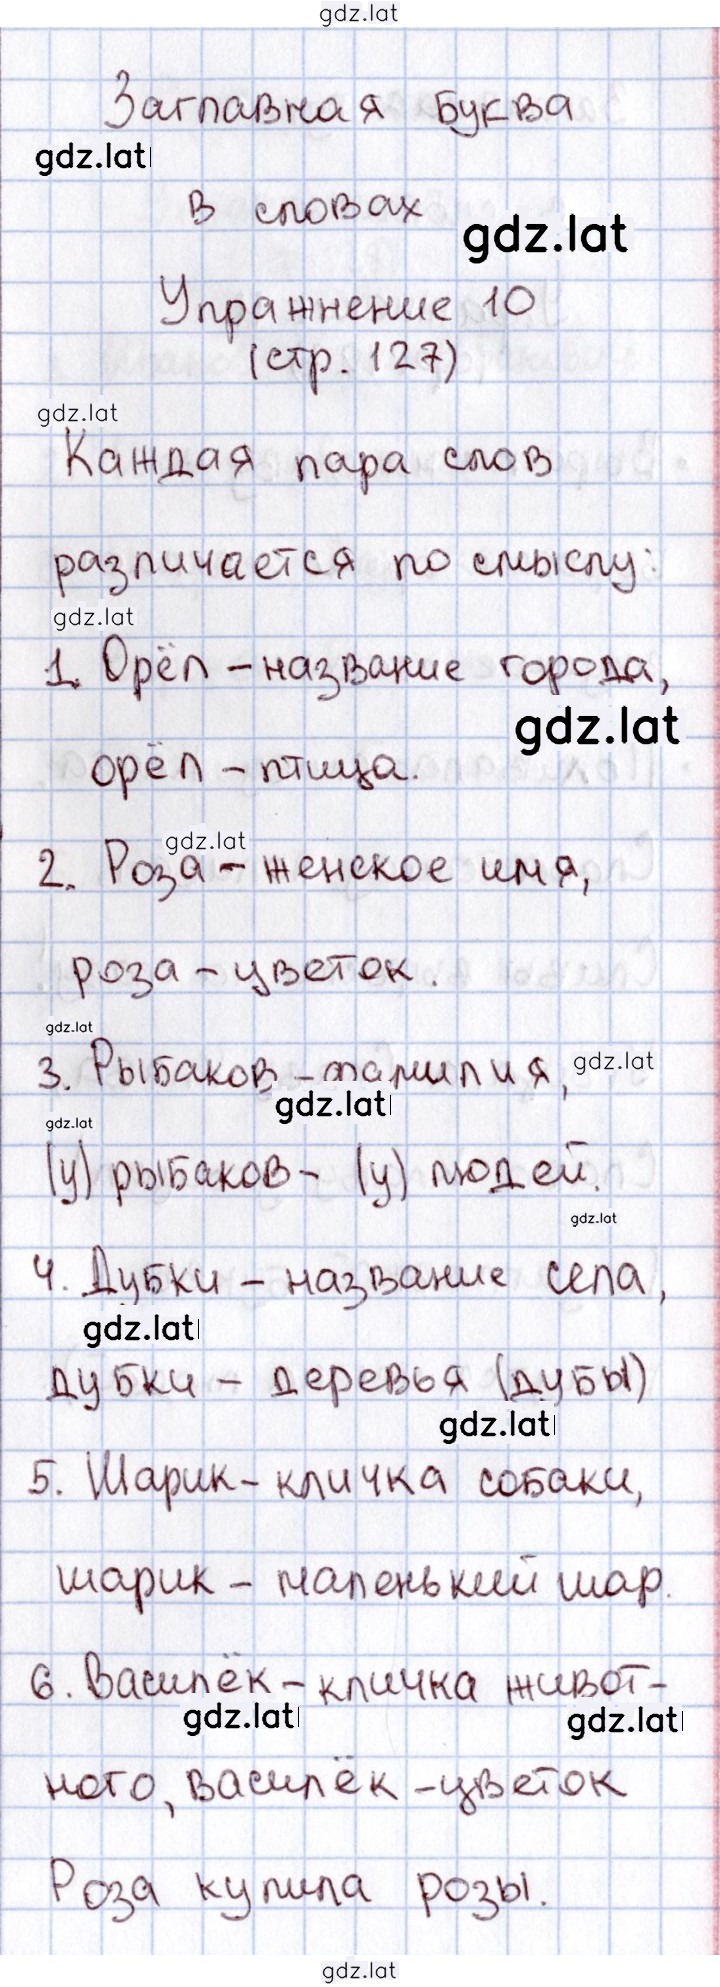 gdz.lat
Заглавная буква
gdz.lat
в словах
gdz.lat
Упражнение 10
(стр. 127)
gdz.lat
Каждая пара слов
различается по смыслу:
gdz.lat
1. Орёл – название города,
gdz.lat
орёл – птица.
gdz.lat
2. Роза – женское имя,
роза – цветок.
gdz.lat
3. Рыбаков – фамилия,
gdz.lat
gdz.lat
gdz.lat
(у) рыбаков – (у) людей.
gdz.lat
4. Дубки – название села,
gdz.lat
дубки – деревья (дубы)
gdz.lat
5. Шарик – кличка собаки,
шарик – маленький шар.
6. Василёк – кличка живот-
gdz.lat
gdz.lat
ного, василёк – цветок
Роза купила розы.
gdz.lat